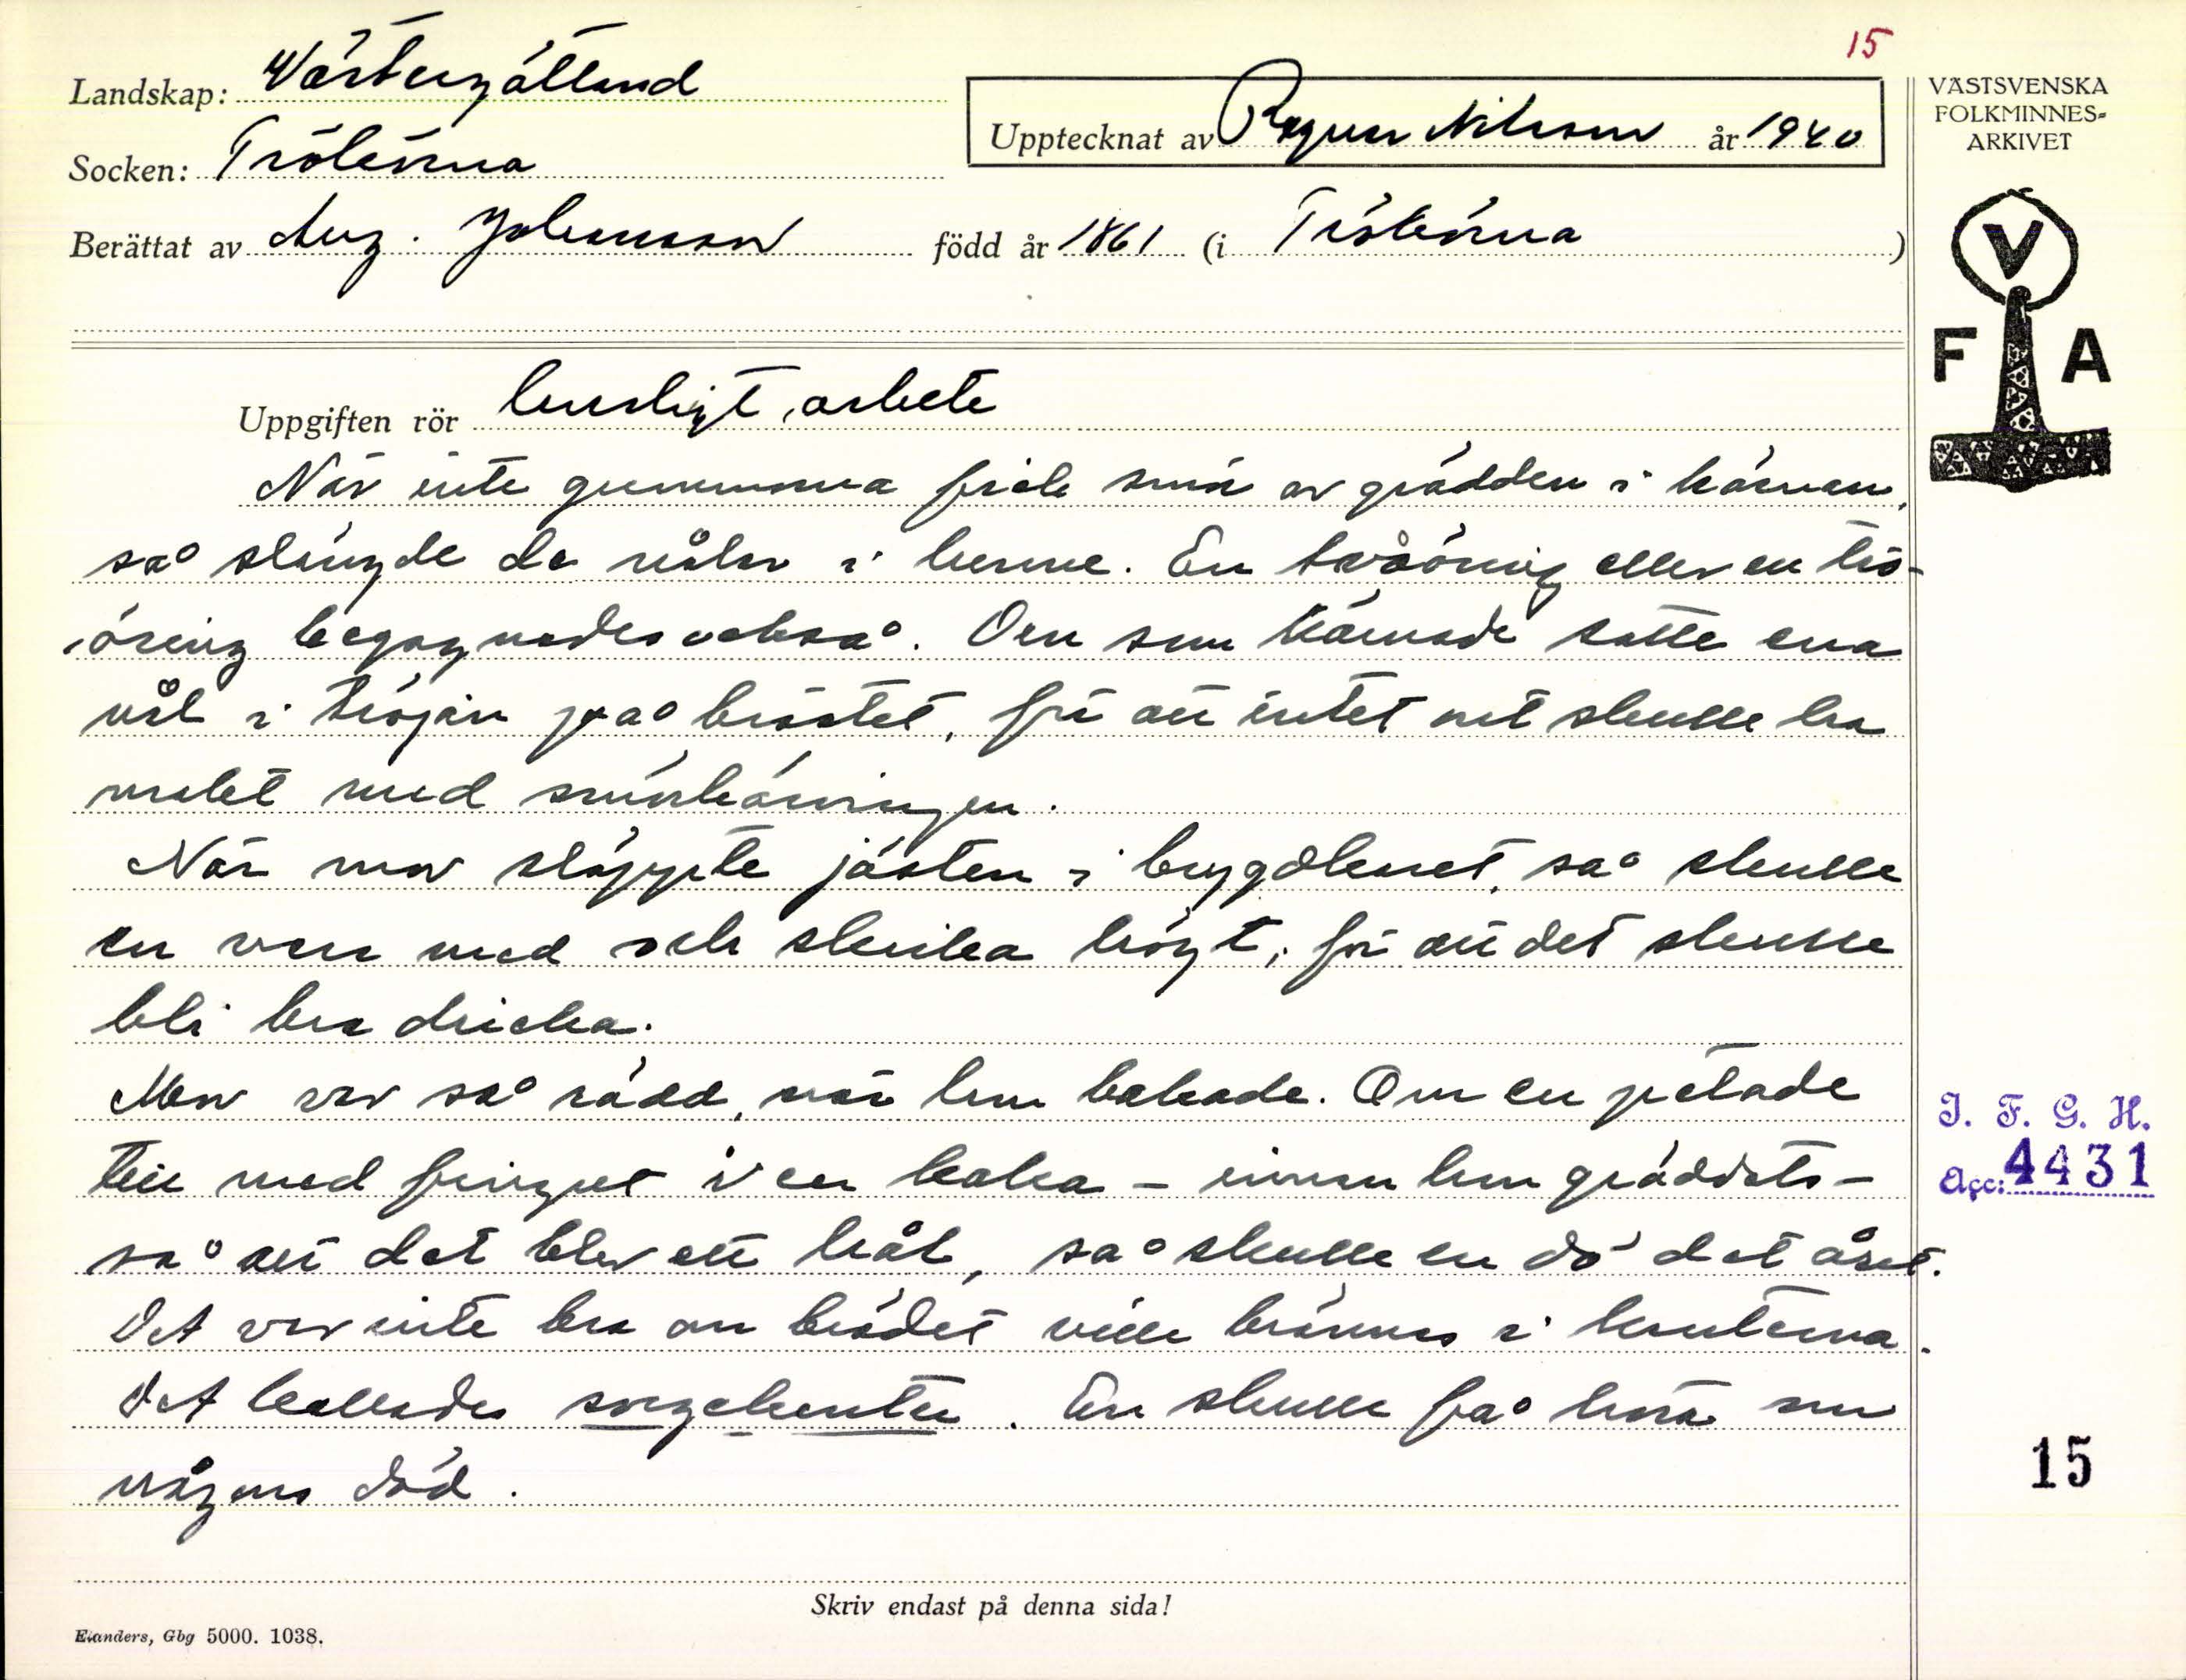 15
Landskap: Västergötland
Socken: Trökörna
Upptecknat av Ragnar Nilsson år 1940
Berättat av Aug. Johansson född år 1861 (i Trökörna)
VÄSTSVENSKA
FOLKMINNES-
ARKIVET
V
F A
Uppgiften rör husligt arbete
När inte gummorna fick smör av grädden i kärnan,
så slängde de nålar i henne. En tvåöring eller en tio-
öring begagnades också. Den som kärnade satte ena
nål i tröjan på bröstet, för att intet ont skulle ha
makt med smörkärningen.
När man släppte jästen i brygdkaret, så skulle
en vara med och skrika högt, för att det skulle
bli bra dricka.
Man var så rädd, när hon bakade. Om en petade
till med fingret i en kaka – innan hon gräddats –
så att det blev ett hål, så skulle en dö det året.
Det var inte bra om brödet ville brännas i kanterna.
Det kallades sorgekanter. En skulle få höra om
någons död.
I. F. G. H.
Acc: 4431
15
Skriv endast på denna sida!
Elanders, Gbg 5000. 1038.